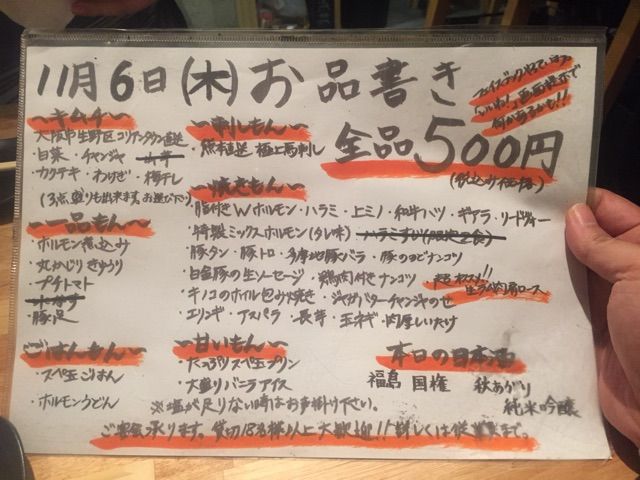 11月6日(木)お品書き
フェイスブックやっています
いいね!画面提示で
何かあるかも!!
全品500円
(税込み価格)
〜キムチ〜
大阪市生野区コリアンタウン直送
白菜・チャンジャ
カクテキ・わけぎ・梅干し
(3点盛りも出来ます。お選び下さい)
〜刺しもん〜
・熊本直送 極上馬刺し
〜一品もん〜
・ホルモン煮込み
・丸かじりきゅうり
・プチトマト
・水なす
・豚足
〜焼きもん〜
・脂付きWホルモン・ハラミ・上ミノ・和牛ハツ・ギアラ・リードヴォー
・特製ミックスホルモン(タレ味)
・豚タン・豚トロ・多摩地豚バラ・豚のどナンコツ
・白金豚の生ソーセージ・鶏肉付ナンコツ
超オススメ!!
生ラム肉肩ロース
・キノコのホイル包み焼き・ジャガバターチャンジャのせ
・エリンギ・アスパラ・長芋・玉ネギ・肉厚しいたけ
〜ごはんもん〜
・スペ玉ごはん
・ホルモンうどん
〜甘いもん〜
・たっぷりスペ玉プリン
・大盛りバニラアイス
本日の日本酒
福島 国権 秋あがり
純米吟醸
※塩が足りない時はお声掛け下さい。
ご宴会承ります。貸切18名様以上大歓迎!!詳しくは従業員まで。